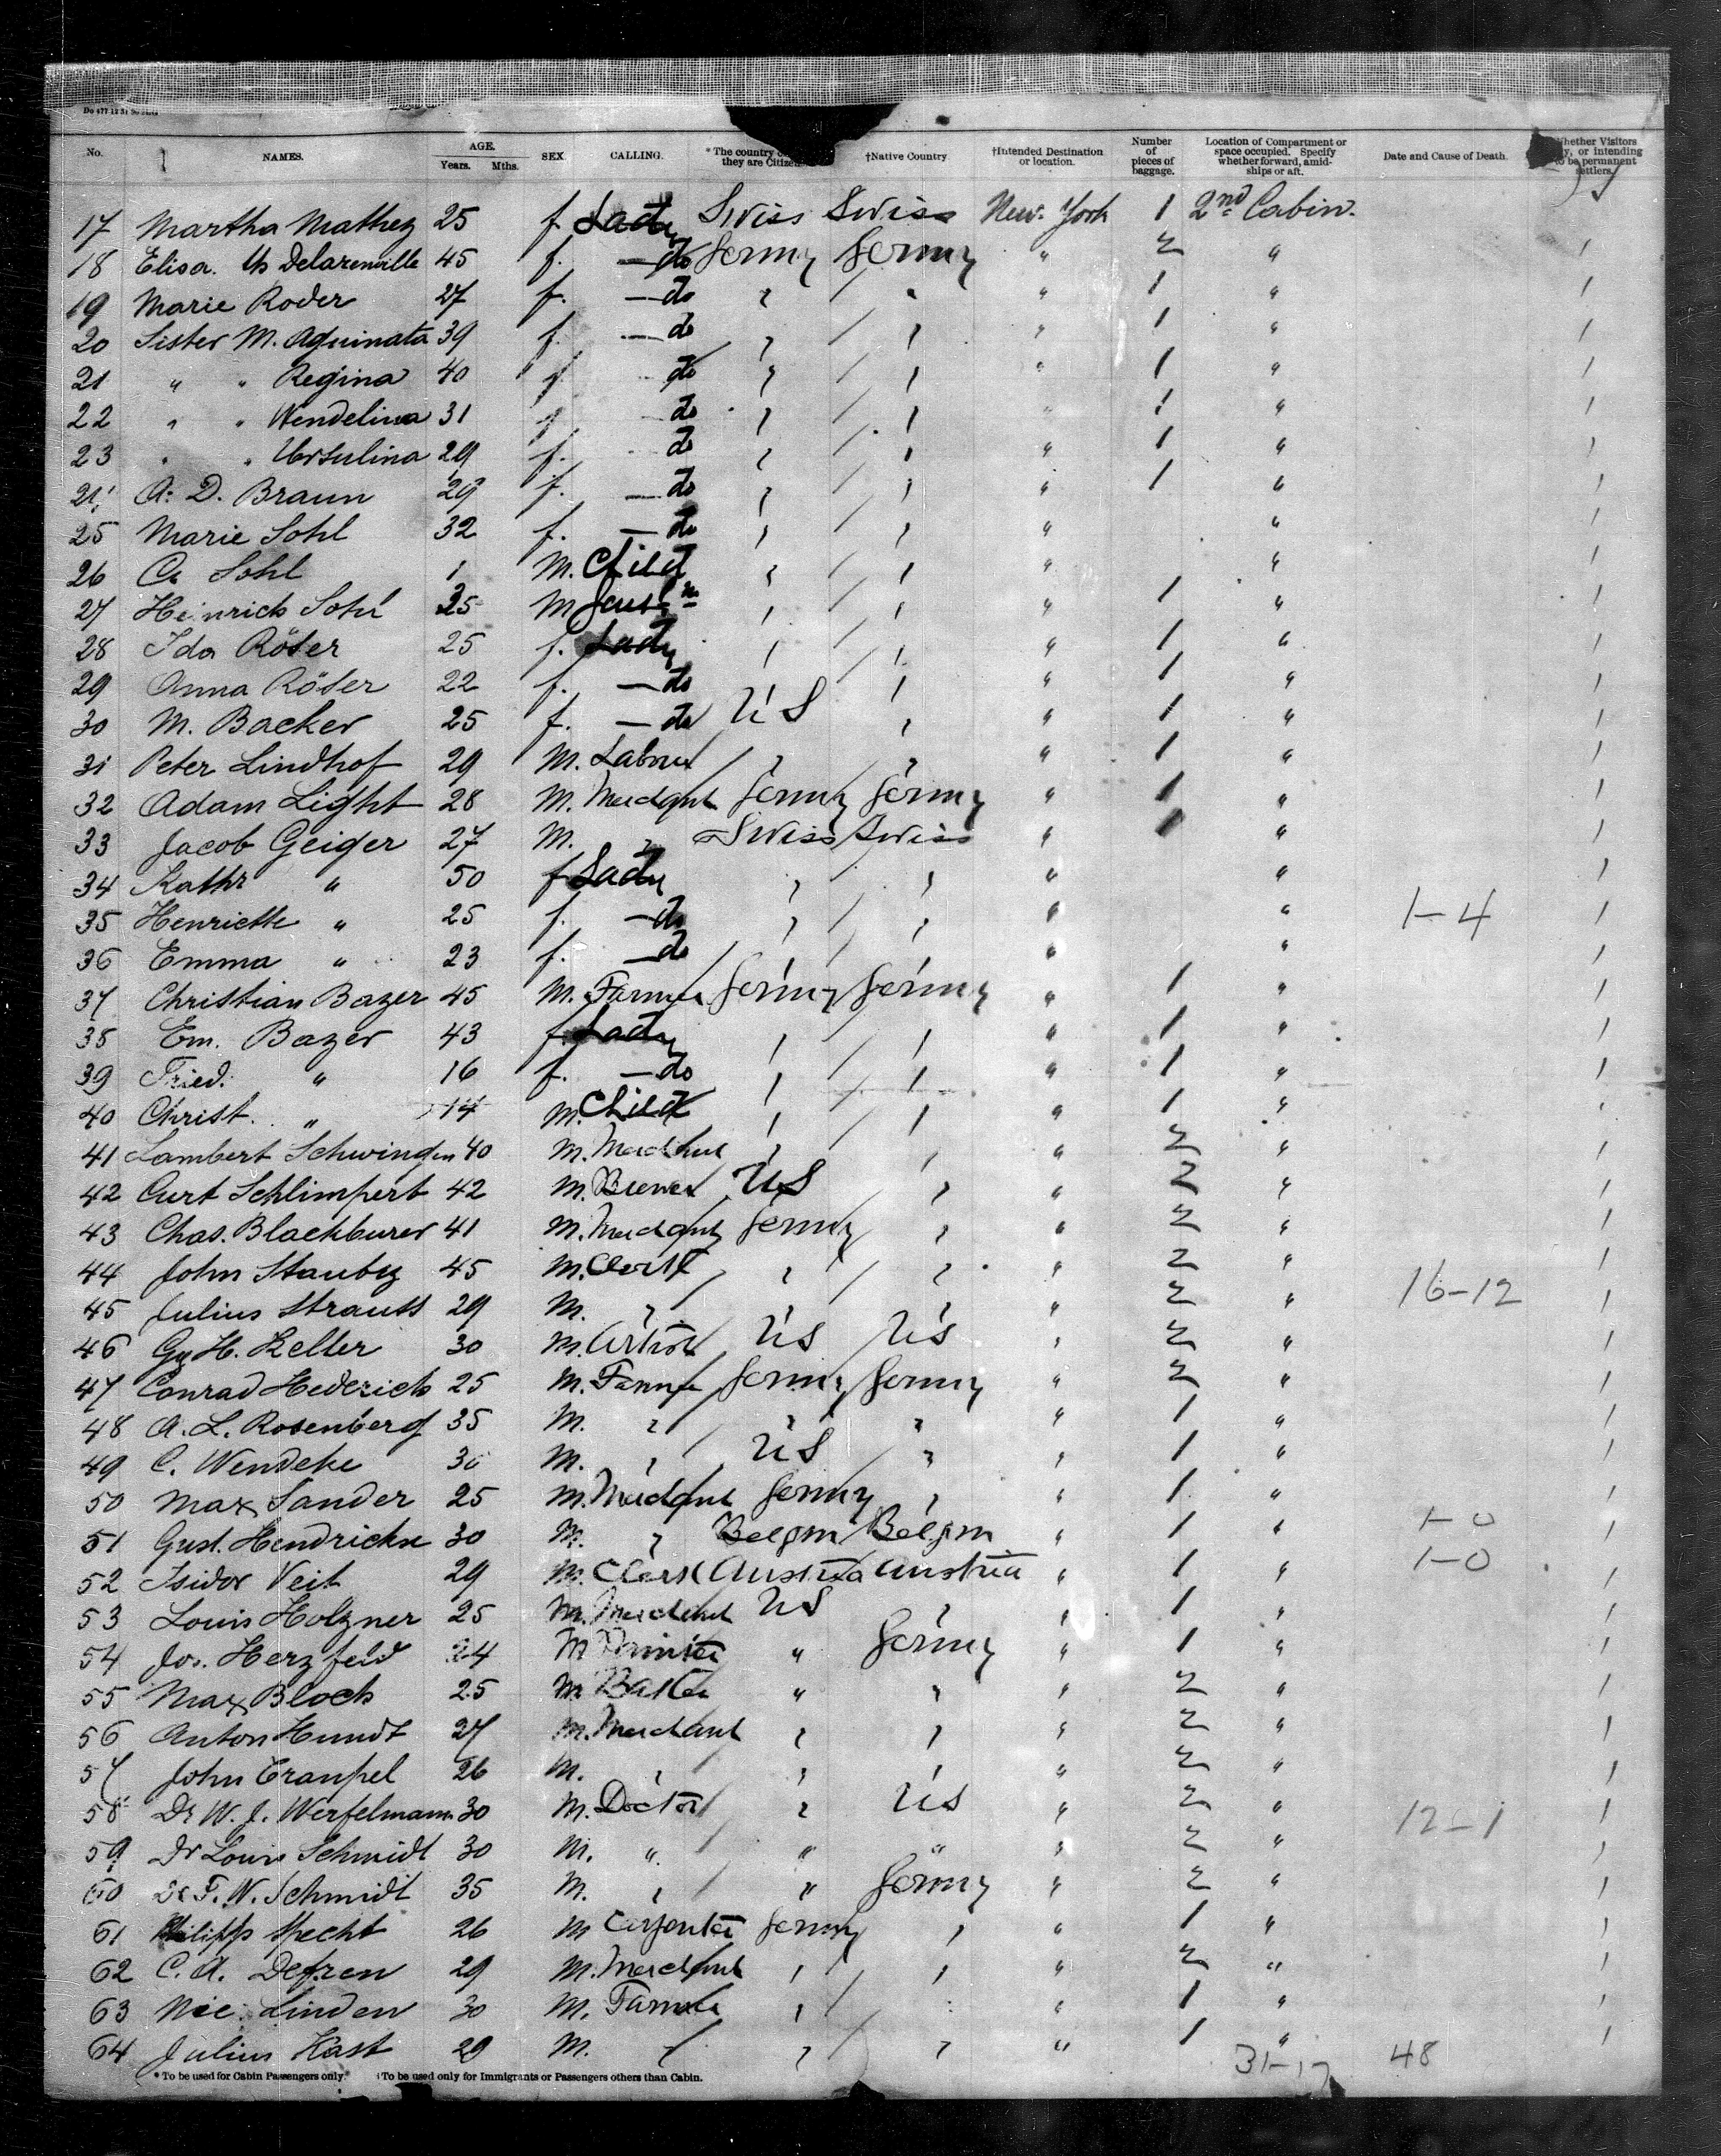 No. NAMES. AGE. Years. Mths. SEX CALLING. * The country they are Citizens †Native Country. †Intended Destination or location. Number of pieces of baggage. Location of Compartment or space occupied. Specify whether forward, amidships or aft. Date and Cause of Death. Whether Visitors or intending to be permanent settlers.
17 Martha Mathez 25 f. Lady Swiss Swiss New York 1 2nd Cabin.
18 Elisa 45 f. — do Germy Germy " 2 "
19 Marie Roder 27 f. — do " " " 1 "
20 Sister M. Aquinata 39 f. — do " " " 1 "
21 " " Regina 40 f. do " " " 1 "
22 " " Wendelina 31 f. do " " " 1 "
23 " " Ursulina 29 f. do " " " 1 "
A. D. Braun 29 f. — do " " " 1 "
25 Marie Sohl 32 f. — do " " " "
26 Sohl 1 M. Child " " " "
27 Heinrich Sohl 25 M " " " 1 "
28 Ida Röser 25 f. Lady " " " 1 "
29 Anna Röser 22 f. — do " " 1 "
30 M. Backer 25 f. — do US " " 1 "
31 Peter Lindhof 29 M. Labour " " " 1 "
32 Adam Light 28 M. Merchant Germy Germy " 1 "
33 Jacob Geiger 27 M. " Swiss Swiss " 1 "
34 Kathr " 50 f Lady " " " "
35 Henriette " 25 f. — do " " " " 1-4
36 Emma " 23 f. — do " " " "
37 Christian Bazer 45 M. Farmer Germy Germy " 1 "
38 Em. Bazer 43 f Lady " " " 1 "
39 Fried. " 16 f. — do " " " 1 "
40 Christ. " 14 M. Child " " " 1 "
41 Lambert Schwingen 40 M. Merchant " " " 2 "
42 Curt Schlimpert 42 M. Brewer US " " 2 "
43 Chas. Blackburer 41 M. Merchant Germy " " 2 "
44 John 45 M. Clerk " " " 2 "
45 Julius Strauss 29 M. " " " " 2 " 16-12
46 H. Keller 30 M. Artist US US " 2 "
47 Conrad Hederich 25 M. Farmer Germy Germy " 2 "
48 A. L. Rosenberg 35 M. " " " " 1 "
49 C. Wendeke 30 M. " US " " 1 "
50 Max Sander 25 M. Merchant Germy " " 1 "
51 Gust. 30 M. " Belgm Belgm " 1 " 1-0
52 Isidor Veit 29 M. Clerk Austria Austria " 1 " 1-0
53 Louis Holzner 25 M. Merchant US " " 1 "
54 Jos. Herzfeld 24 M " Germy " 1 "
55 Max Bloch 25 M " " " 2 "
56 Anton Hundt 27 M. Merchant " " " 2 "
57 John 26 M. " " " " 2 "
58 Dr W. J. Werfelmann 30 M. Doctor " US " 2 " 12-1
59 Dr Louis Schmidt 30 M. " " " " 2 "
60 Dr F. W. Schmidt 35 M. " " Germy " 2 "
61 Philipp Specht 26 M Carpenter Germy " " 1 "
62 C. A. Defren 29 M. Merchant " " " 2 "
63 Nic. Linden 30 M. Farmer " " " 1 "
64 Julius Hast 29 M. " " " " 1 "
48
* To be used for Cabin Passengers only. †To be used only for Immigrants or Passengers others than Cabin.